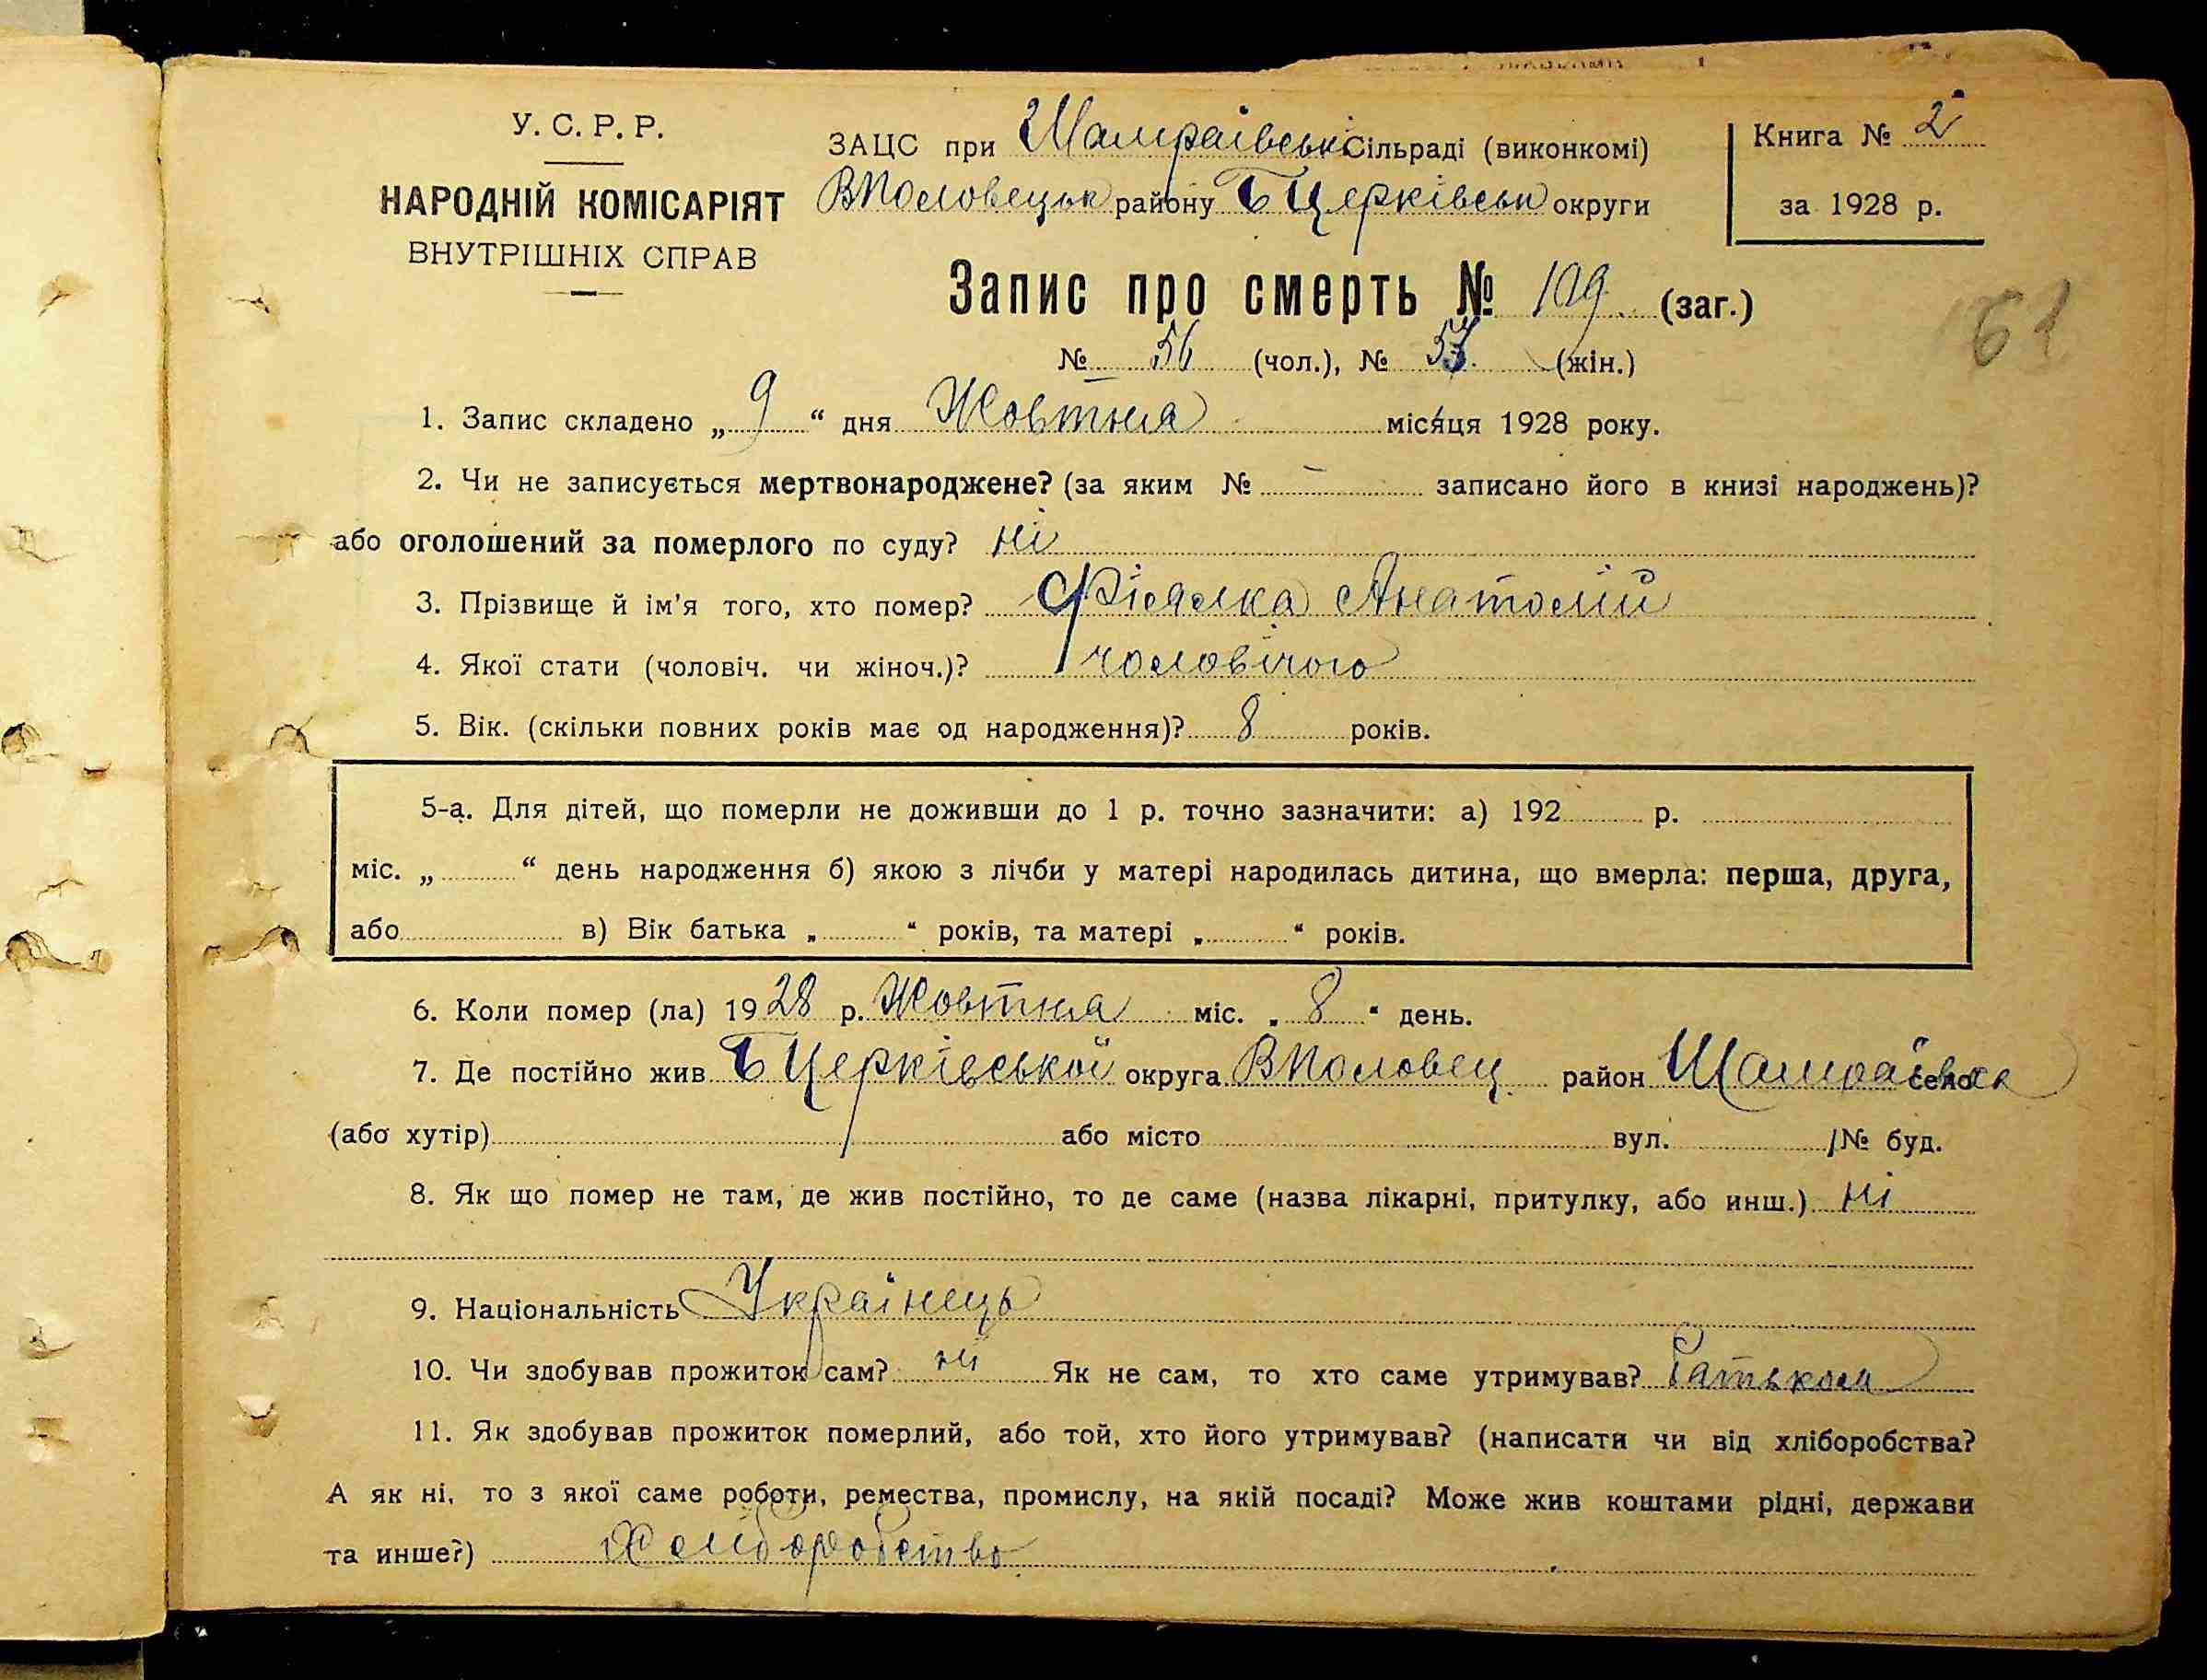 У. С. Р. Р.
НАРОДНІЙ КОМІСАРІЯТ
ВНУТРІШНІХ СПРАВ
ЗАЦС при Шамраївськ сільраді (виконкомі)
ВПоловецьк району БЦерківськ округи
Книга № 2
за 1928 р.
Запис про смерть № 109 (заг.)
№ 56 (чол.), № 53 (жін.)
61
1. Запис складено „ 9 “ дня Жовтня місяця 1928 року.
2. Чи не записується мертвонароджене? (за яким № – записано його в книзі народжень)?
або оголошений за померлого по суду? ні
3. Прізвище й ім'я того, хто помер? Фіялка Анатолій
4. Якої стати (чоловіч. чи жіноч.)? чоловічого
5. Вік. (скільки повних років має од народження)? 8 років.
5-а. Для дітей, що померли не доживши до 1 р. точно зазначити: а) 192 р.
міс. „ “ день народження б) якою з лічби у матері народилась дитина, що вмерла: перша, друга,
або в) Вік батька „ “ років, та матері „ “ років.
6. Коли помер (ла) 1928 р. Жовтня міс. „ 8 “ день.
7. Де постійно жив БЦерківської округа ВПоловец район Шамраївка село
(або хутір) або місто вул. № буд.
8. Як що помер не там, де жив постійно, то де саме (назва лікарні, притулку, або инш.) ні
9. Національність Українець
10. Чи здобував прожиток сам? ні Як не сам, то хто саме утримував? батьком
11. Як здобував прожиток померлий, або той, хто його утримував? (написати чи від хліборобства?
А як ні, то з якої саме роботи, ремества, промислу, на якій посаді? Може жив коштами рідні, держави
та инше?) Хліборобство